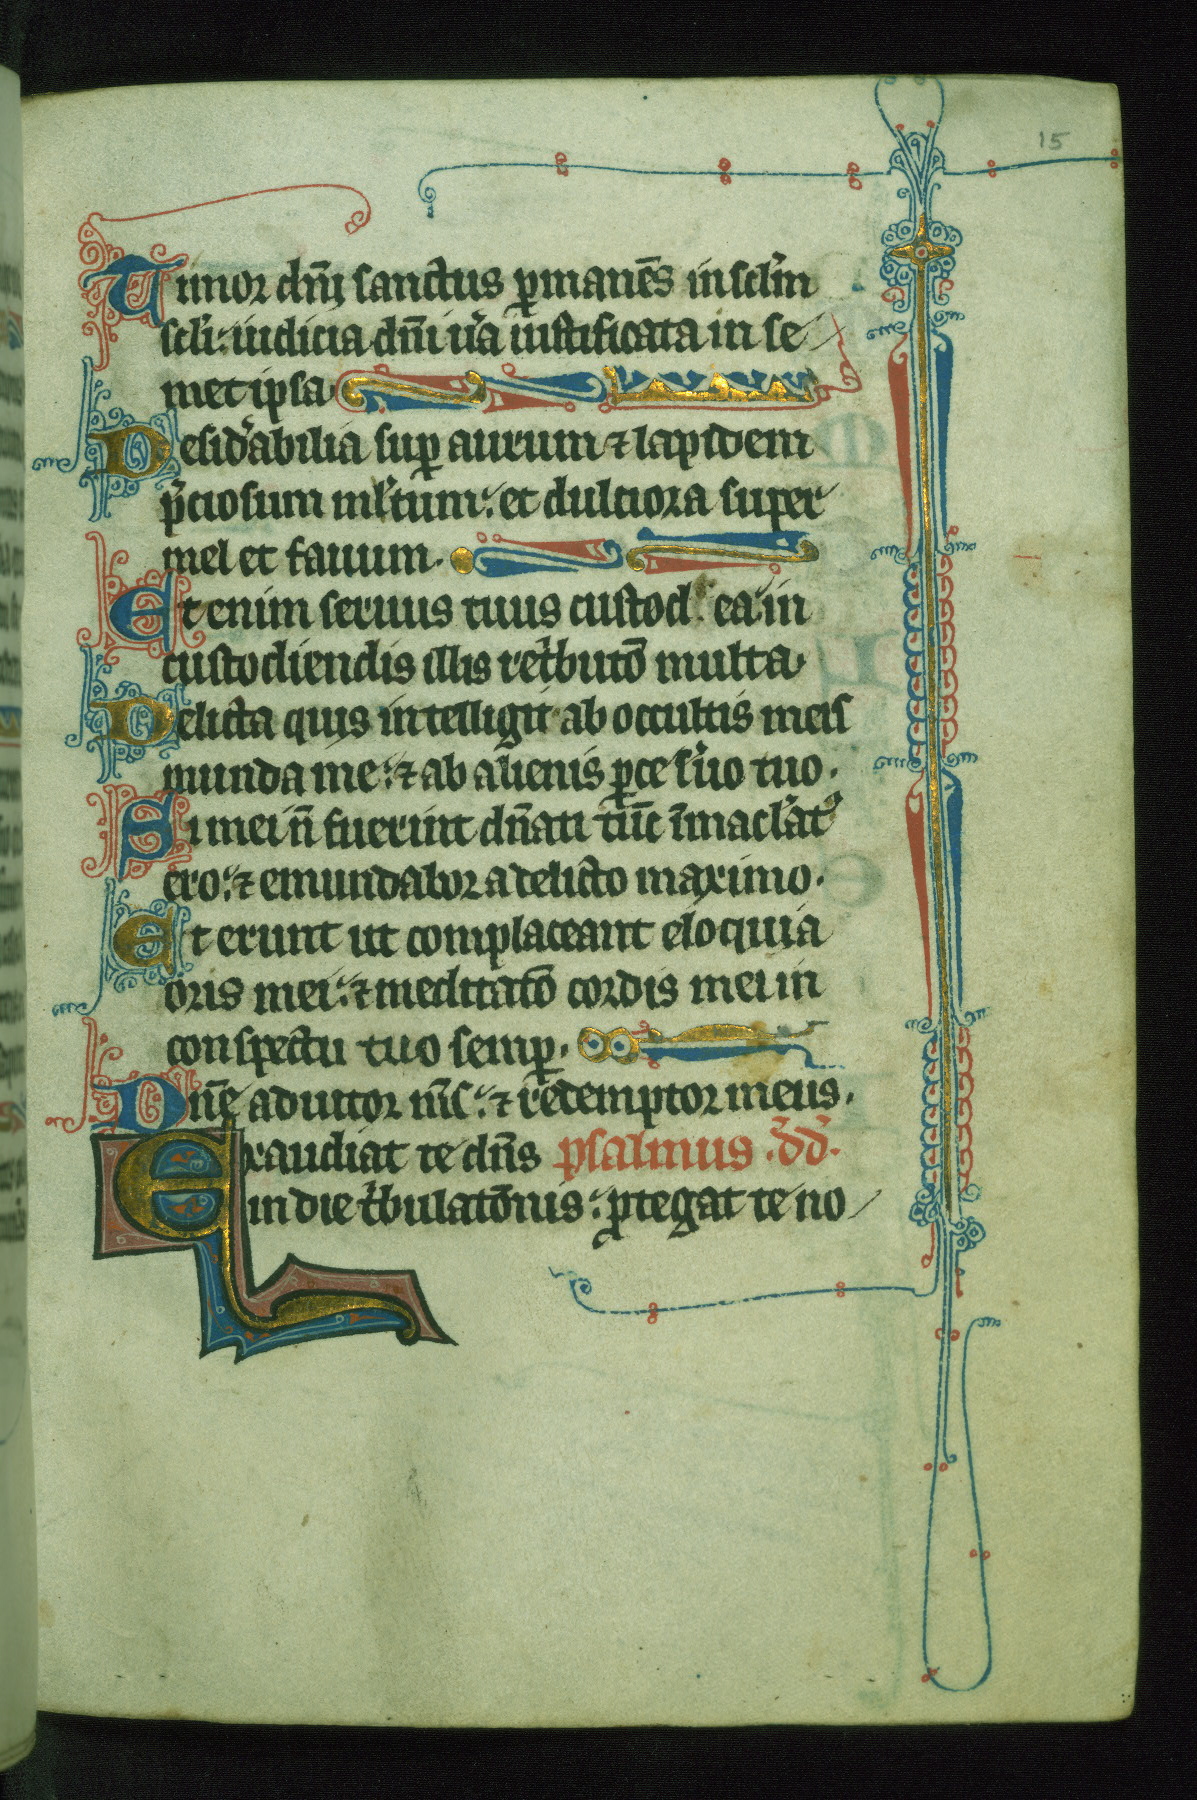 15
Timor dñi sanctus ꝑmanēs in sclm̄
scli: iudicia dñi ũa iustificata in se
metipsa
Desid̾abilia suꝑ aurum ⁊ lapidem
p̃ciosum ml̃tum: et dulciora super
mel et fauum.
Et enim seruus tuus custod ea in
custodiendis illis ret̾butō multa
Delicta quis intelligit ab occultis meis
munda me: ⁊ ab alienis ꝑce s̾uo tuo.
Si mei ñ fuerint dñati tūc īmacl̃at᷒
ero: ⁊ emundabor a delicto maximo.
Et erunt ut complaceant eloquia
oris mei: ⁊ meditatō cordis mei in
conspectu tuo semꝑ.
Dñe adiutor m̃s: ⁊ redemptor meus.
Exaudiat te dñs psalmus .d̄d̄.
in die t̾bulatōnis: ꝓtegat te no